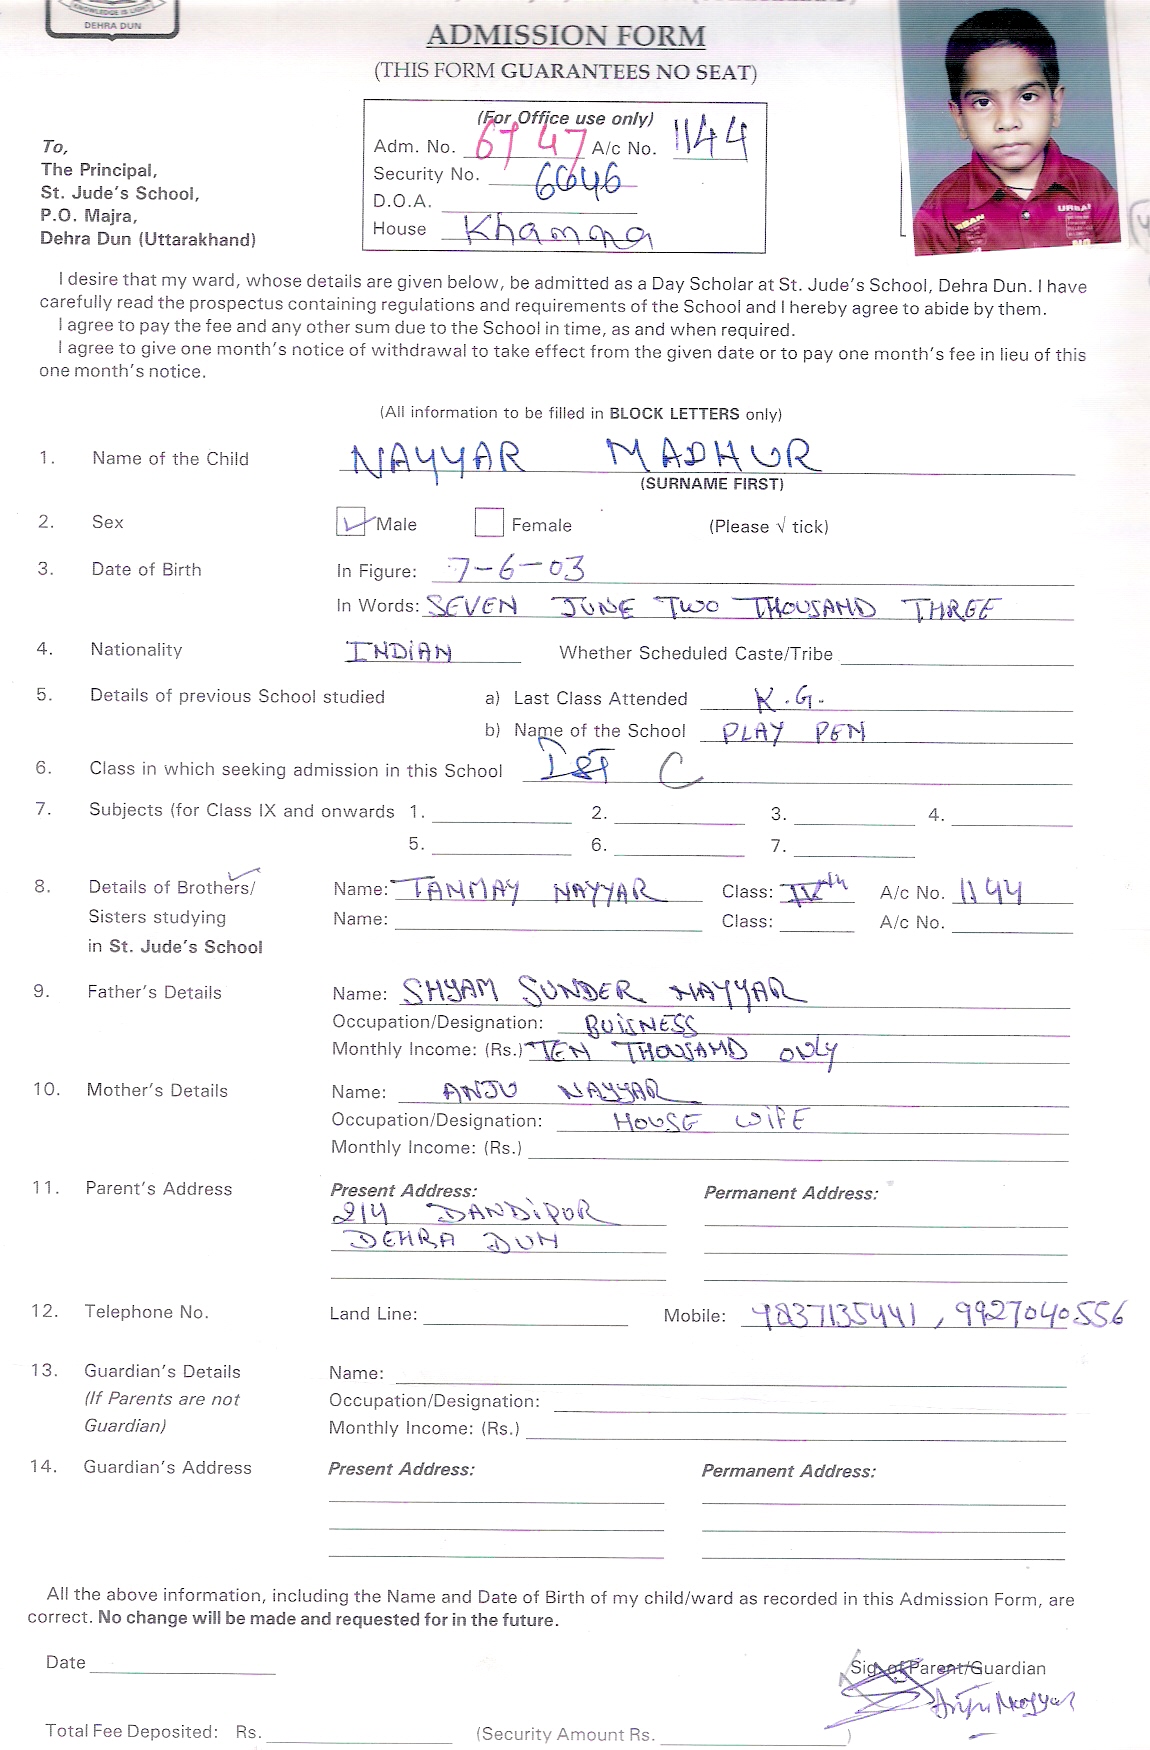 KNOWLEDGE IS LIGHT
DEHRA DUN
ADMISSION FORM
(THIS FORM GUARANTEES NO SEAT)
(For Office use only)
Adm. No. 6747 A/c No. 1144
Security No. 6646
D.O.A.
House Khanna
To,
The Principal,
St. Jude's School,
P.O. Majra,
Dehra Dun (Uttarakhand)
I desire that my ward, whose details are given below, be admitted as a Day Scholar at St. Jude's School, Dehra Dun. I have
carefully read the prospectus containing regulations and requirements of the School and I hereby agree to abide by them.
I agree to pay the fee and any other sum due to the School in time, as and when required.
I agree to give one month's notice of withdrawal to take effect from the given date or to pay one month's fee in lieu of this
one month's notice.
(All information to be filled in BLOCK LETTERS only)
1. Name of the Child NAYYAR MADHUR
(SURNAME FIRST)
2. Sex Male Female (Please √ tick)
3. Date of Birth In Figure: 7-6-03
In Words: SEVEN JUNE TWO THOUSAND THREE
4. Nationality INDIAN Whether Scheduled Caste/Tribe
5. Details of previous School studied a) Last Class Attended K.G.
b) Name of the School PLAY PEN
6. Class in which seeking admission in this School Ist C
7. Subjects (for Class IX and onwards 1. 2. 3. 4.
5. 6. 7.
8. Details of Brothers/ Name: TANMAY NAYYAR Class: IVth A/c No. 1144
Sisters studying Name: Class: A/c No.
in St. Jude's School
9. Father's Details Name: SHYAM SUNDER NAYYAR
Occupation/Designation: BUISNESS
Monthly Income: (Rs.) TEN THOUSAND ONLY
10. Mother's Details Name: ANJU NAYYAR
Occupation/Designation: HOUSE WIFE
Monthly Income: (Rs.)
11. Parent's Address Present Address: Permanent Address:
214 DANDIPUR
DEHRA DUN
12. Telephone No. Land Line: Mobile: 9837135441, 9927040556
13. Guardian's Details Name:
(If Parents are not Occupation/Designation:
Guardian) Monthly Income: (Rs.)
14. Guardian's Address Present Address: Permanent Address:
All the above information, including the Name and Date of Birth of my child/ward as recorded in this Admission Form, are
correct. No change will be made and requested for in the future.
Date Sig. of Parent/Guardian
Anju Nayyar
Total Fee Deposited: Rs. (Security Amount Rs. )